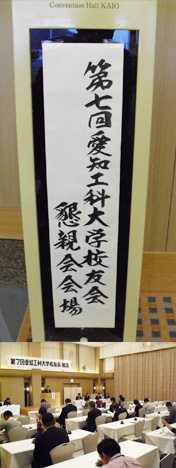 Convention Hall KAIO
第七回愛知工科大学校友会
懇親会会場
第7回愛知工科大学校友会 総会